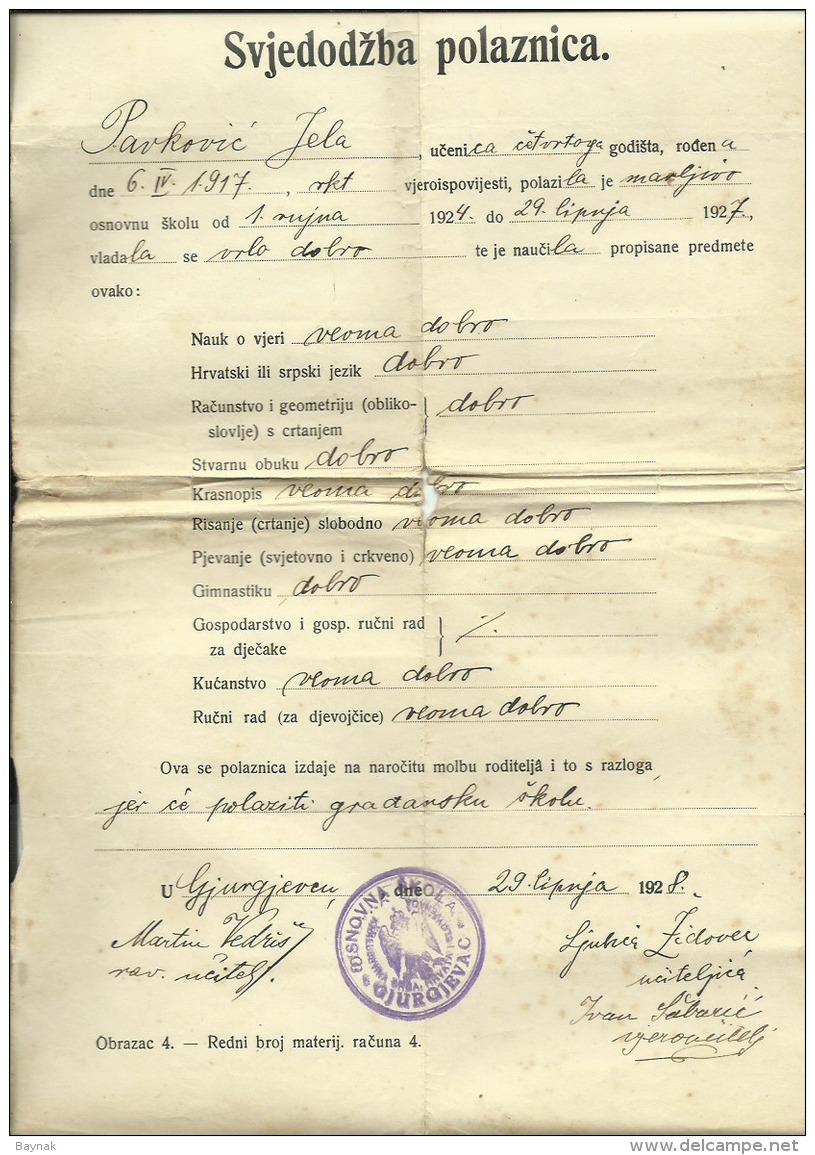 Svjedodžba polaznica.
Pavković Jela, učenica četvrtoga godišta, rođena
dne 6. IV. 1917., rkt vjeroispovijesti, polazila je marljivo
osnovnu školu od 1. rujna 1924. do 29. lipnja 1927.,
vladala se vrlo dobro te je naučila propisane predmete
ovako:
Nauk o vjeri veoma dobro
Hrvatski ili srpski jezik dobro
Računstvo i geometriju (obliko- } dobro
slovlje) s crtanjem
Stvarnu obuku dobro
Krasnopis veoma dobro
Risanje (crtanje) slobodno veoma dobro
Pjevanje (svjetovno i crkveno) veoma dobro
Gimnastiku dobro
Gospodarstvo i gosp. ručni rad } /.
za dječake
Kućanstvo veoma dobro
Ručni rad (za djevojčice) veoma dobro
Ova se polaznica izdaje na naročitu molbu roditeljâ i to s razloga
jer će polaziti građansku školu.
U Gjurgjevcu, dne 29. lipnja 1928.
OSNOVNA ŠKOLA
GJURGJEVAC
Martin Vedriš
rav. učitelj.
Ljubica Židovec
učiteljica
Ivan
vjeroučitelj
Obrazac 4. — Redni broj materij. računa 4.
Baynak
www.delcampe.net